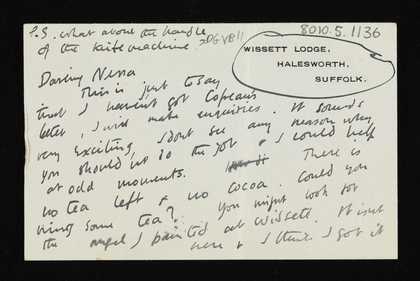 P.S. what about the handle
of the knife machine.
8010.5.1136
WISSETT LODGE,
HALESWORTH,
SUFFOLK.
Darling Nessa
This is just to say
that I havent got Copeaus
letter, I will make enquiries. It sounds
very exciting. I dont see any reason why
you should not do the job & I could help
at odd moments. There is
no tea left & no cocoa. Could you
bring some tea? You might look for
the angel I painted at Wissett. It isnt
here & I think I got it